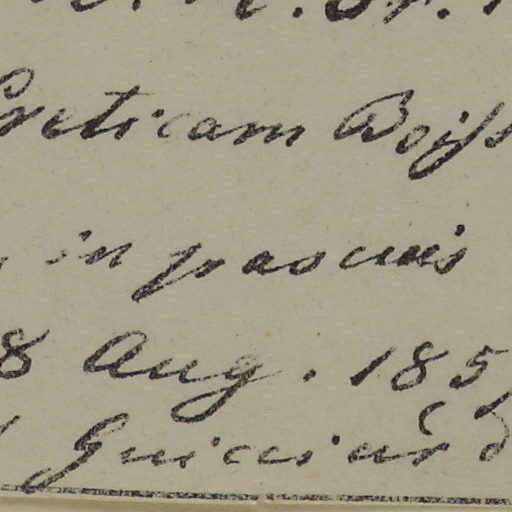 Creticam Boiss
in pascuis
8 Aug. 185
Guicciard